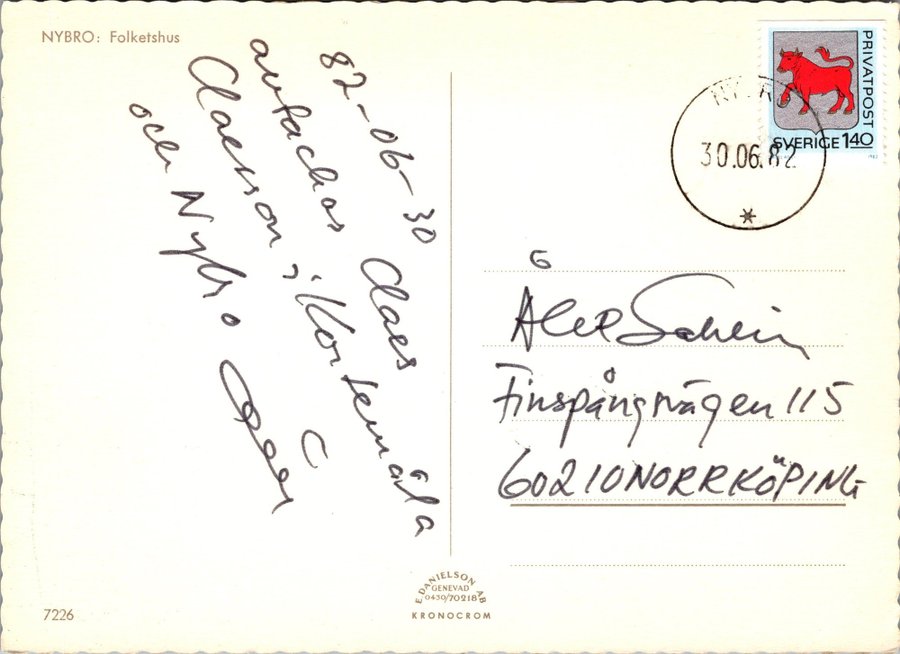 NYBRO: Folketshus
82-06-30 Claes
avtackas
Claesson, i Kortemåla
och Nybro
PRIVATPOST
SVERIGE 140
30.06.82
Schein
Finspångsvägen 115
60210 NORRKÖPING
E. DANIELSON AB
GENEVAD
0430/70218
KRONOCROM
7226